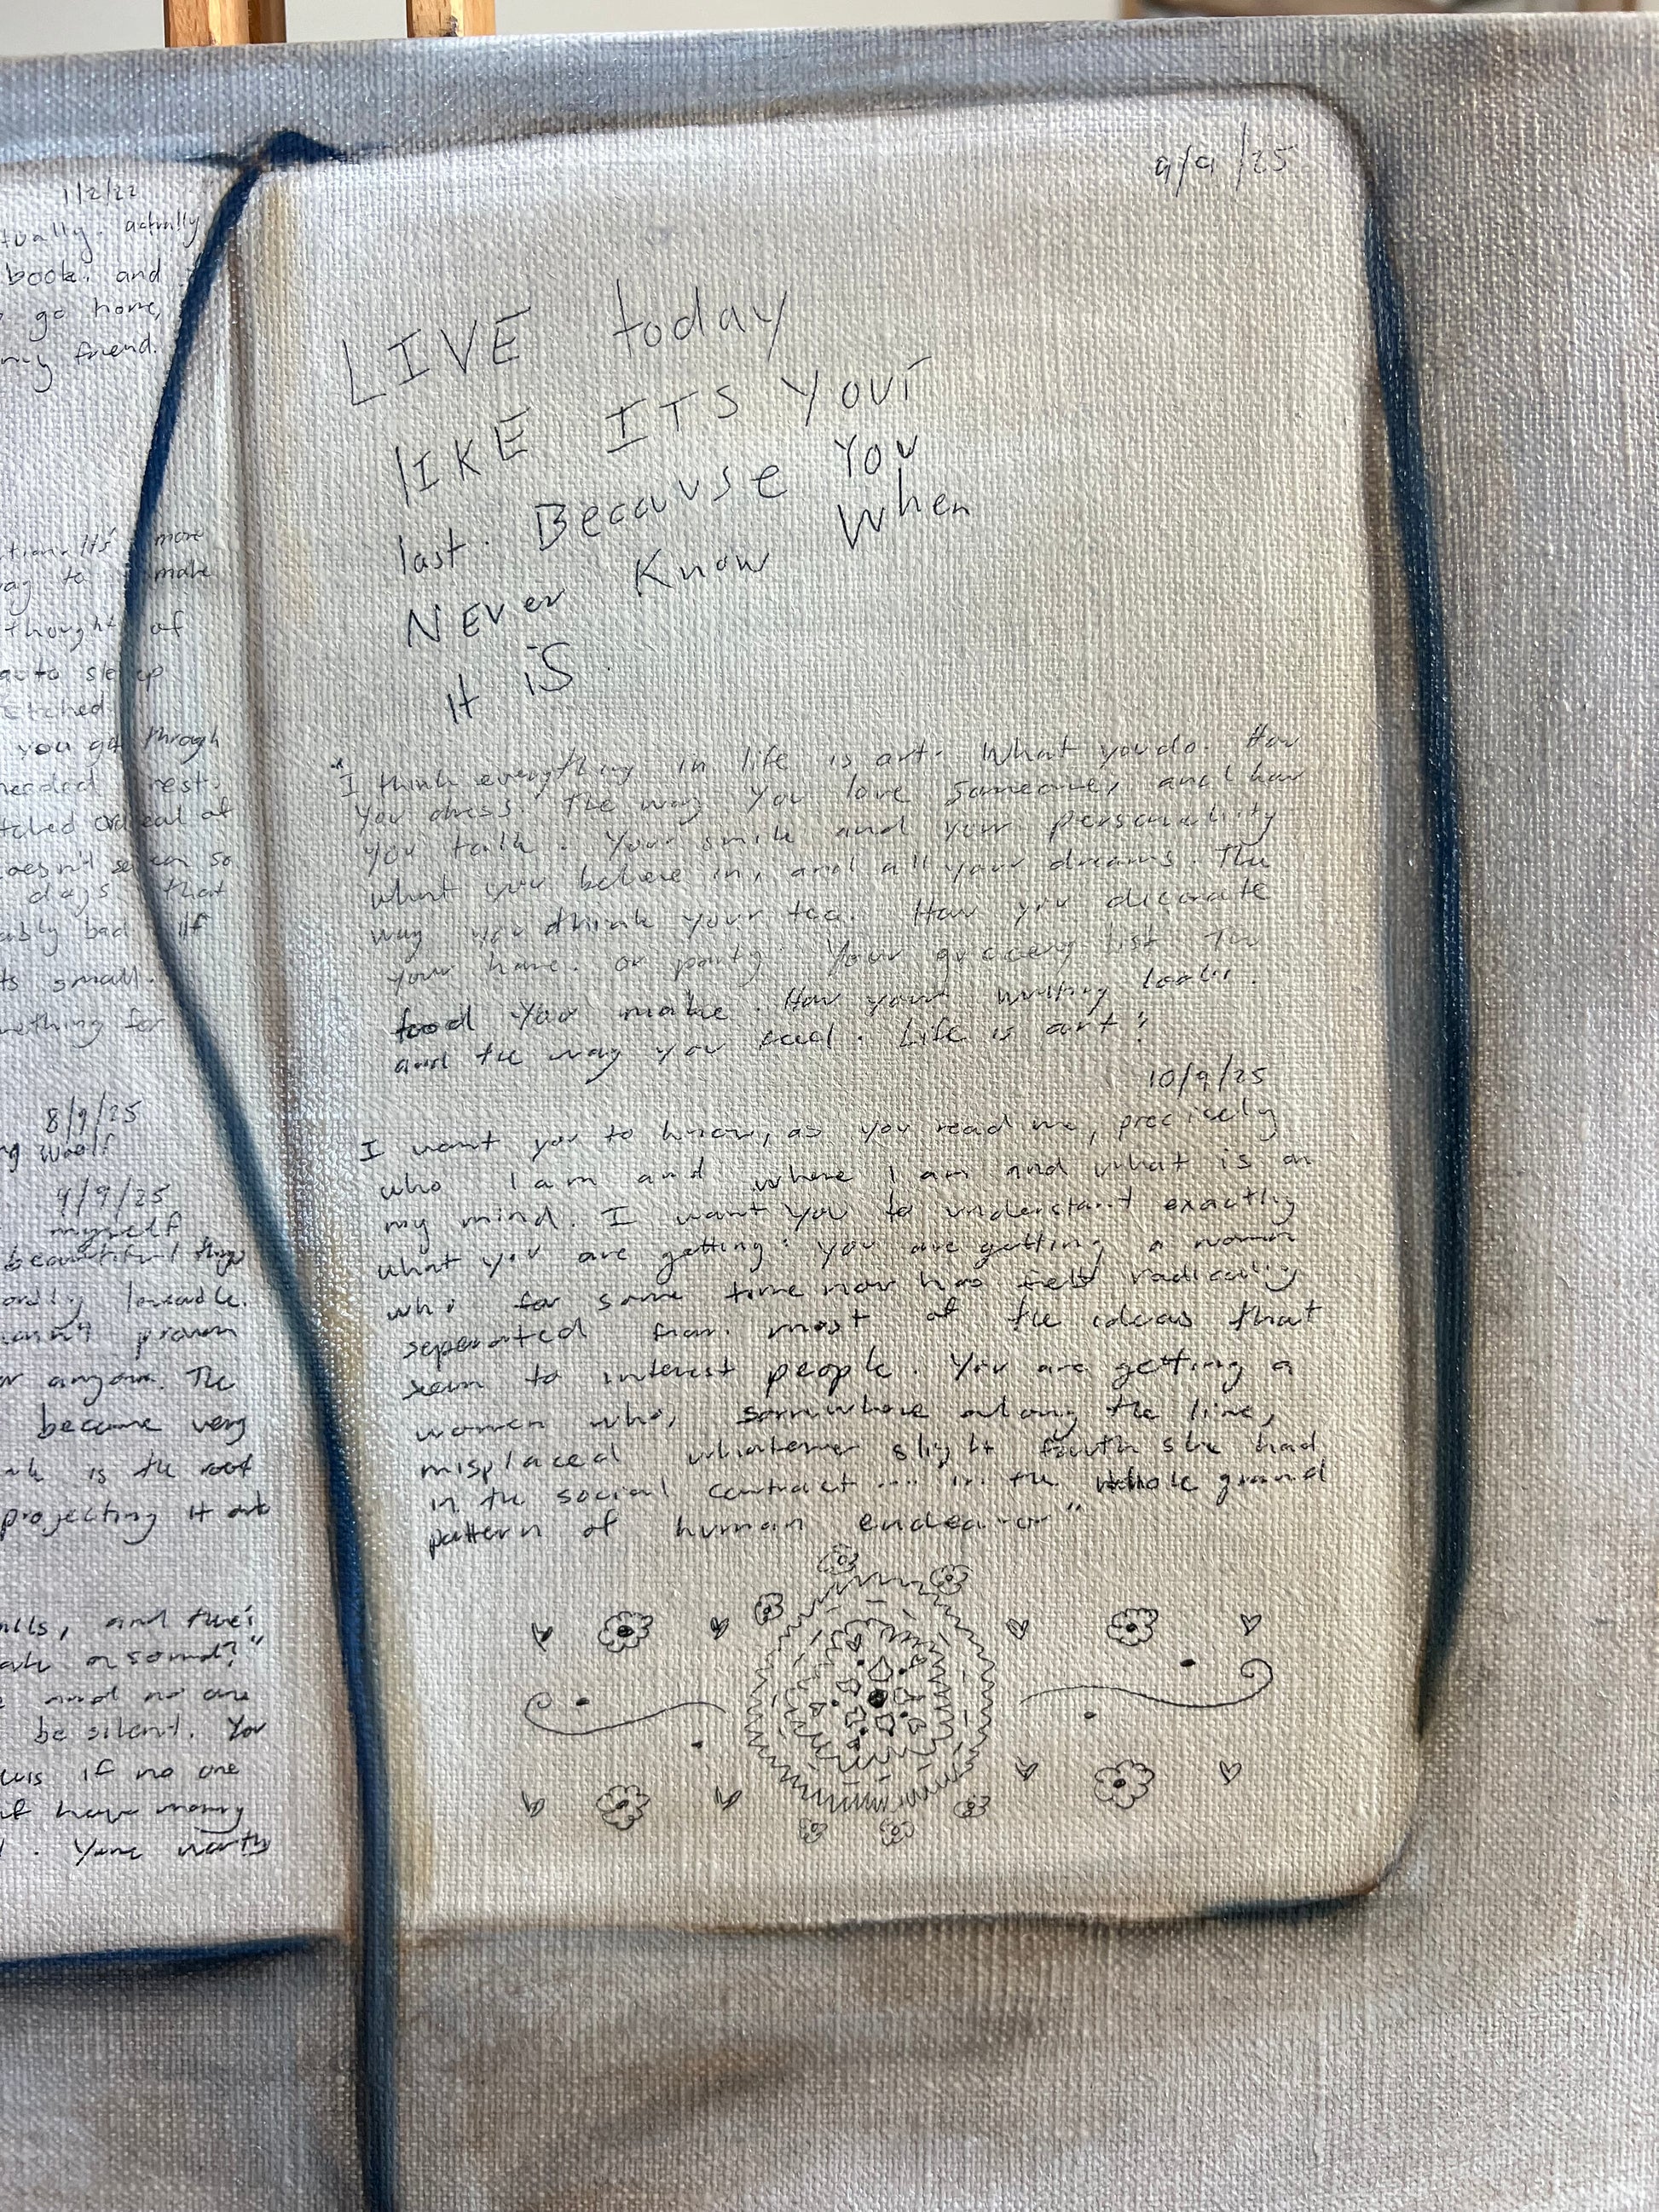 1/2/22
tually. actually
book. and
go home,
my friend.
more
to make
thought of
sleep
etched
you get throgh
needed rest.
ordeal of
doesn't so
days that
ably bad. If
ts small.
mething for
8/9/25
Woolf
9/9/25
myself
beautiful
proven
or anyone. The
become very
is the root
projecting it
and
a sound?"
and no one
be silent. You
if no one
have money
worth
9/9/25
LIVE today
lIKE ITS Your
last. Becauuse You
NEVer Know When
it iS.
"I think everything in life is art. What you do. How
you dress. The way you love someone, and how
you talk. Your smile and your personality
what you believe in, and all your dreams. The
way you drink your tea. How you decorate
your home. or party. Your grocery list. The
food you make. How your writing looks.
and the way you feel. Life is art."
10/9/25
I want you to know, as you read me, precicely
who I am and where I am and what is on
my mind. I want you to understant exactly
what you are getting: you are getting a woman
who for some time now has felt radically
seperated from most of the ideas that
seem to interest people. You are getting a
women who, somwhere along the line,
misplaced whatever slight faith she had
in the social contract .... in the whole grand
pattern of human endeavor"